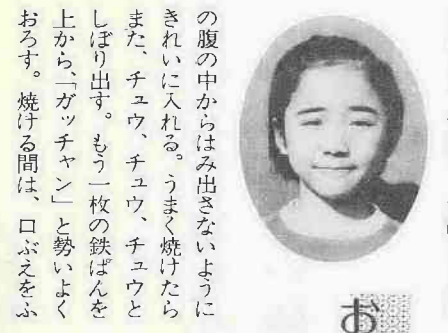 の腹の中からはみ出さないように
きれいに入れる。うまく焼けたら
また、チュウ、チュウ、チュウと
しぼり出す。もう一枚の鉄ぱんを
上から、「ガッチャン」と勢いよく
おろす。焼ける間は、口ぶえをふ
お